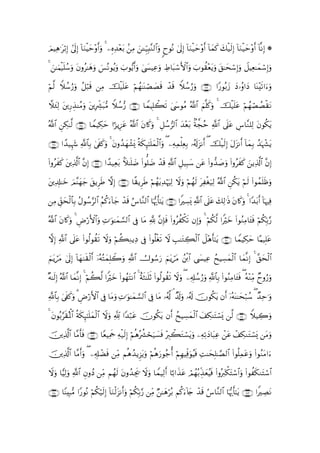 ۞ إِنَّا أَوْحَيْنَا إِلَيْكَ كَمَا أَوْحَيْنَا إِلَىٰ نُوحٍ وَالنَّبِيِّينَ مِنْ بَعْدِهِ ۚ وَأَوْحَيْنَا إِلَىٰ إِبْرَاهِيمَ
وَإِسْمَاعِيلَ وَإِسْحَاقَ وَيَعْقُوبَ وَالْأَسْبَاطِ وَعِيسَىٰ وَأَيُّوبَ وَيُونُسَ وَهَارُونَ وَسُلَيْمَانَ ۚ
وَآتَيْنَا دَاوُودَ زَبُورًا ۝ وَرُسُلًا قَدْ قَصَصْنَاهُمْ عَلَيْكَ مِنْ قَبْلُ وَرُسُلًا لَمْ
نَقْصُصْهُمْ عَلَيْكَ ۚ وَكَلَّمَ اللَّهُ مُوسَىٰ تَكْلِيمًا ۝ رُسُلًا مُبَشِّرِينَ وَمُنْذِرِينَ لِئَلَّا
يَكُونَ لِلنَّاسِ عَلَى اللَّهِ حُجَّةٌ بَعْدَ الرُّسُلِ ۚ وَكَانَ اللَّهُ عَزِيزًا حَكِيمًا ۝ لَٰكِنِ اللَّهُ
يَشْهَدُ بِمَا أَنْزَلَ إِلَيْكَ ۖ أَنْزَلَهُ بِعِلْمِهِ ۖ وَالْمَلَائِكَةُ يَشْهَدُونَ ۚ وَكَفَىٰ بِاللَّهِ شَهِيدًا ۝
إِنَّ الَّذِينَ كَفَرُوا وَصَدُّوا عَنْ سَبِيلِ اللَّهِ قَدْ ضَلُّوا ضَلَالًا بَعِيدًا ۝ إِنَّ الَّذِينَ كَفَرُوا
وَظَلَمُوا لَمْ يَكُنِ اللَّهُ لِيَغْفِرَ لَهُمْ وَلَا لِيَهْدِيَهُمْ طَرِيقًا ۝ إِلَّا طَرِيقَ جَهَنَّمَ خَالِدِينَ
فِيهَا أَبَدًا ۚ وَكَانَ ذَٰلِكَ عَلَى اللَّهِ يَسِيرًا ۝ يَا أَيُّهَا النَّاسُ قَدْ جَاءَكُمُ الرَّسُولُ بِالْحَقِّ مِنْ
رَبِّكُمْ فَآمِنُوا خَيْرًا لَكُمْ ۚ وَإِنْ تَكْفُرُوا فَإِنَّ لِلَّهِ مَا فِي السَّمَاوَاتِ وَالْأَرْضِ ۚ وَكَانَ اللَّهُ
عَلِيمًا حَكِيمًا ۝ يَا أَهْلَ الْكِتَابِ لَا تَغْلُوا فِي دِينِكُمْ وَلَا تَقُولُوا عَلَى اللَّهِ إِلَّا
الْحَقَّ ۚ إِنَّمَا الْمَسِيحُ عِيسَى ابْنُ مَرْيَمَ رَسُولُ اللَّهِ وَكَلِمَتُهُ أَلْقَاهَا إِلَىٰ مَرْيَمَ
وَرُوحٌ مِنْهُ ۖ فَآمِنُوا بِاللَّهِ وَرُسُلِهِ ۖ وَلَا تَقُولُوا ثَلَاثَةٌ ۚ انْتَهُوا خَيْرًا لَكُمْ ۚ إِنَّمَا اللَّهُ إِلَٰهٌ
وَاحِدٌ ۖ سُبْحَانَهُ أَنْ يَكُونَ لَهُ وَلَدٌ ۘ لَهُ مَا فِي السَّمَاوَاتِ وَمَا فِي الْأَرْضِ ۗ وَكَفَىٰ بِاللَّهِ
وَكِيلًا ۝ لَنْ يَسْتَنْكِفَ الْمَسِيحُ أَنْ يَكُونَ عَبْدًا لِلَّهِ وَلَا الْمَلَائِكَةُ الْمُقَرَّبُونَ ۚ
وَمَنْ يَسْتَنْكِفْ عَنْ عِبَادَتِهِ وَيَسْتَكْبِرْ فَسَيَحْشُرُهُمْ إِلَيْهِ جَمِيعًا ۝ فَأَمَّا الَّذِينَ
آمَنُوا وَعَمِلُوا الصَّالِحَاتِ فَيُوَفِّيهِمْ أُجُورَهُمْ وَيَزِيدُهُمْ مِنْ فَضْلِهِ ۖ وَأَمَّا الَّذِينَ
اسْتَنْكَفُوا وَاسْتَكْبَرُوا فَيُعَذِّبُهُمْ عَذَابًا أَلِيمًا وَلَا يَجِدُونَ لَهُمْ مِنْ دُونِ اللَّهِ وَلِيًّا وَلَا
نَصِيرًا ۝ يَا أَيُّهَا النَّاسُ قَدْ جَاءَكُمْ بُرْهَانٌ مِنْ رَبِّكُمْ وَأَنْزَلْنَا إِلَيْكُمْ نُورًا مُبِينًا ۝